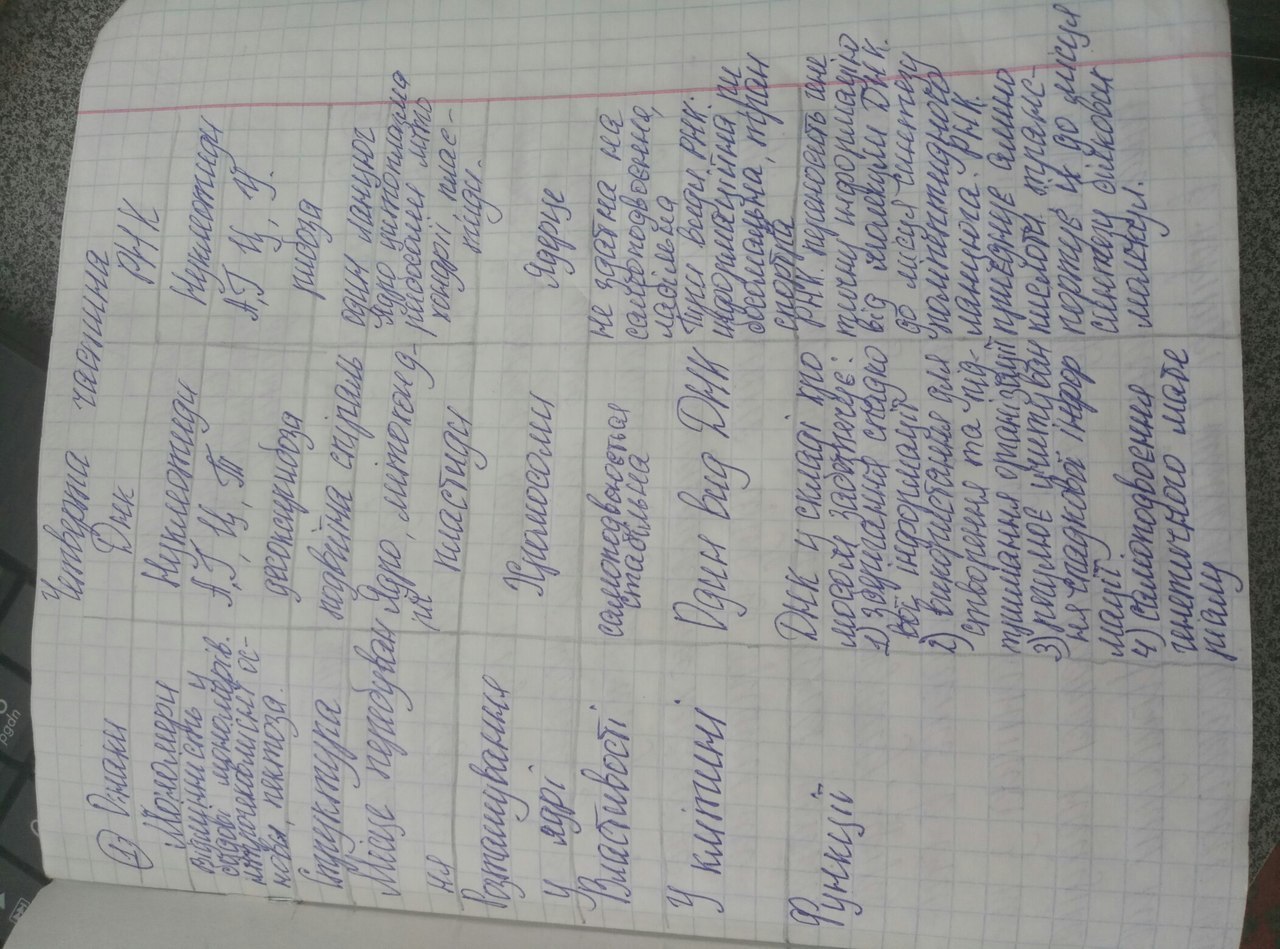 Четверта частина
1) Ознаки
ДНК
РНК
Мономери
Нуклеотиди
А, Г, Ц, Т
Нуклеотиди
А, Г, Ц, У.
Відмінність у
складі мономерів.
нітрогеновмісні ос-
нова, пентоза.
дезоксирибоза
рибоза
Структура
подвійна спіраль
один ланцюг
Місце перебуван
ня
Ядро, мітохонд-
рії
пластиди
Ядро цитоплазма
рибосоми міто
хондрії плас-
тиди.
Розташування
у ядрі
Хромосоми
Ядерце
Властивості
самоподвоюється
стабільна
не здатна на
самоподвоєння,
лабільна
У клітині
Один вид ДНК
Три види РНК:
інформаційна, ри
босомальна, тран
спортна
Функції
ДНК у складі хро
мосом забезпечує:
1) зберігання спадко
вої інформації
2) використання для
створення та під-
тримання організації
3) регулює зчитуван
ня спадкової інфор
мації
4) самоподвоєння
генетичного мате
ріалу
РНК: переносить гене
тичну інформацію
від молекули ДНК.
до місця синтезу
поліпептидного
ланцюга. РНК
приєднує аміно
кислоти транс
портує їх до місця
синтезу білкових
молекул.